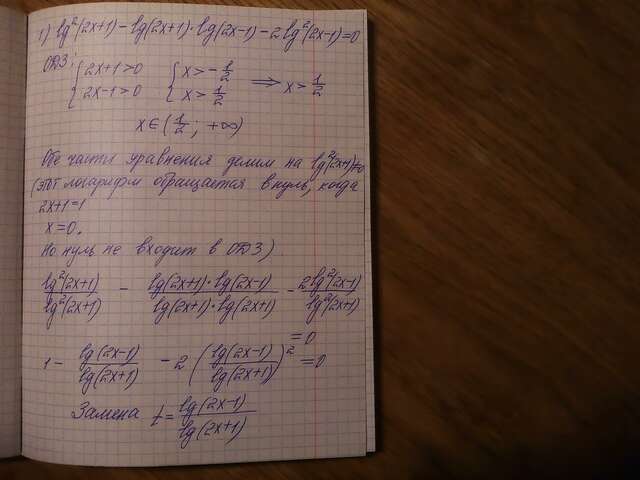 1) lg²(2x+1) - lg(2x+1)·lg(2x-1) - 2lg²(2x-1)=0
ОДЗ:
{2x+1>0 {x>-1/2
{2x-1>0 {x>1/2 ⟹ x>1/2
x∈(1/2; +∞)
Обе части уравнения делим на lg²(2x+1)≠0
(этот логарифм обращается в нуль, когда
2x+1=1
x=0.
Но нуль не входит в ОДЗ)
lg²(2x+1)/lg²(2x+1) - lg(2x+1)·lg(2x-1)/lg(2x+1)·lg(2x+1) - 2lg²(2x-1)/lg²(2x+1)
=0
1 - lg(2x-1)/lg(2x+1) - 2(lg(2x-1)/lg(2x+1))² =0
Замена t=lg(2x-1)/lg(2x+1)